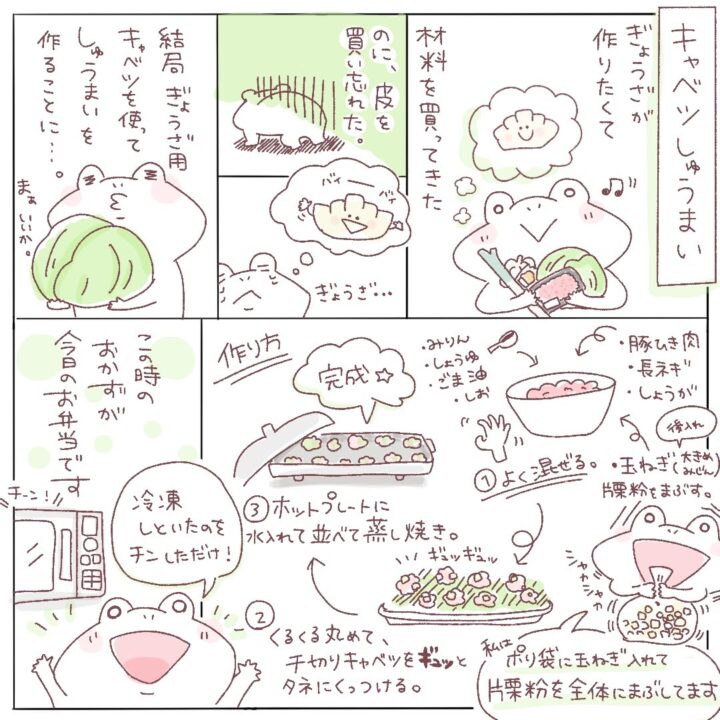 キャベツしゅうまい
ぎょうざが
作りたくて
材料を買ってきた
のに、皮を
買い忘れた。
バィーーバィ
ぎょうざ…
結局 ぎょうざ用
キャベツを使って
しゅうまいを
作ることに…。
まぁ いいか。
作り方
・豚ひき肉
・長ネギ
・しょうが
後入れ
・玉ねぎ(大きめみじん)
片栗粉をまぶす。
・みりん
・しょうゆ
・ごま油
・しお
①よく混ぜる。
シャカシャカ
私は
ポリ袋に玉ねぎ入れて
片栗粉を全体にまぶしてます
ギュッギュッ
②
くるくる丸めて、
千切りキャベツをギュッと
タネにくっつける。
③ホットプレートに
水入れて並べて蒸し焼き。
完成☆
この時の
おかずが
今日のお弁当です
チーン!
冷凍
しといたのを
チンしただけ!